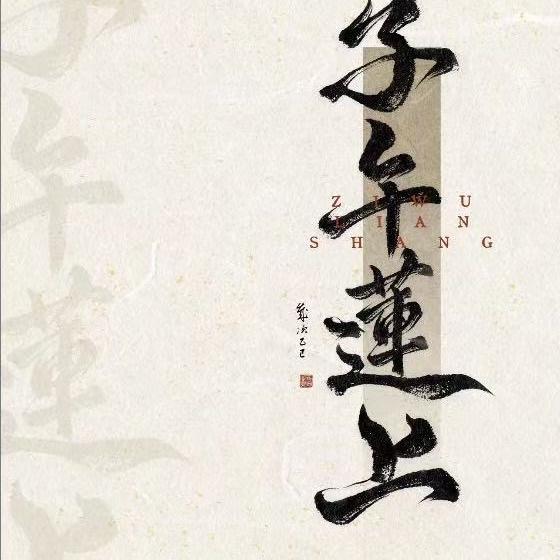 子午蓮上
ZIWU
LIAN
SHANG
歲次乙巳